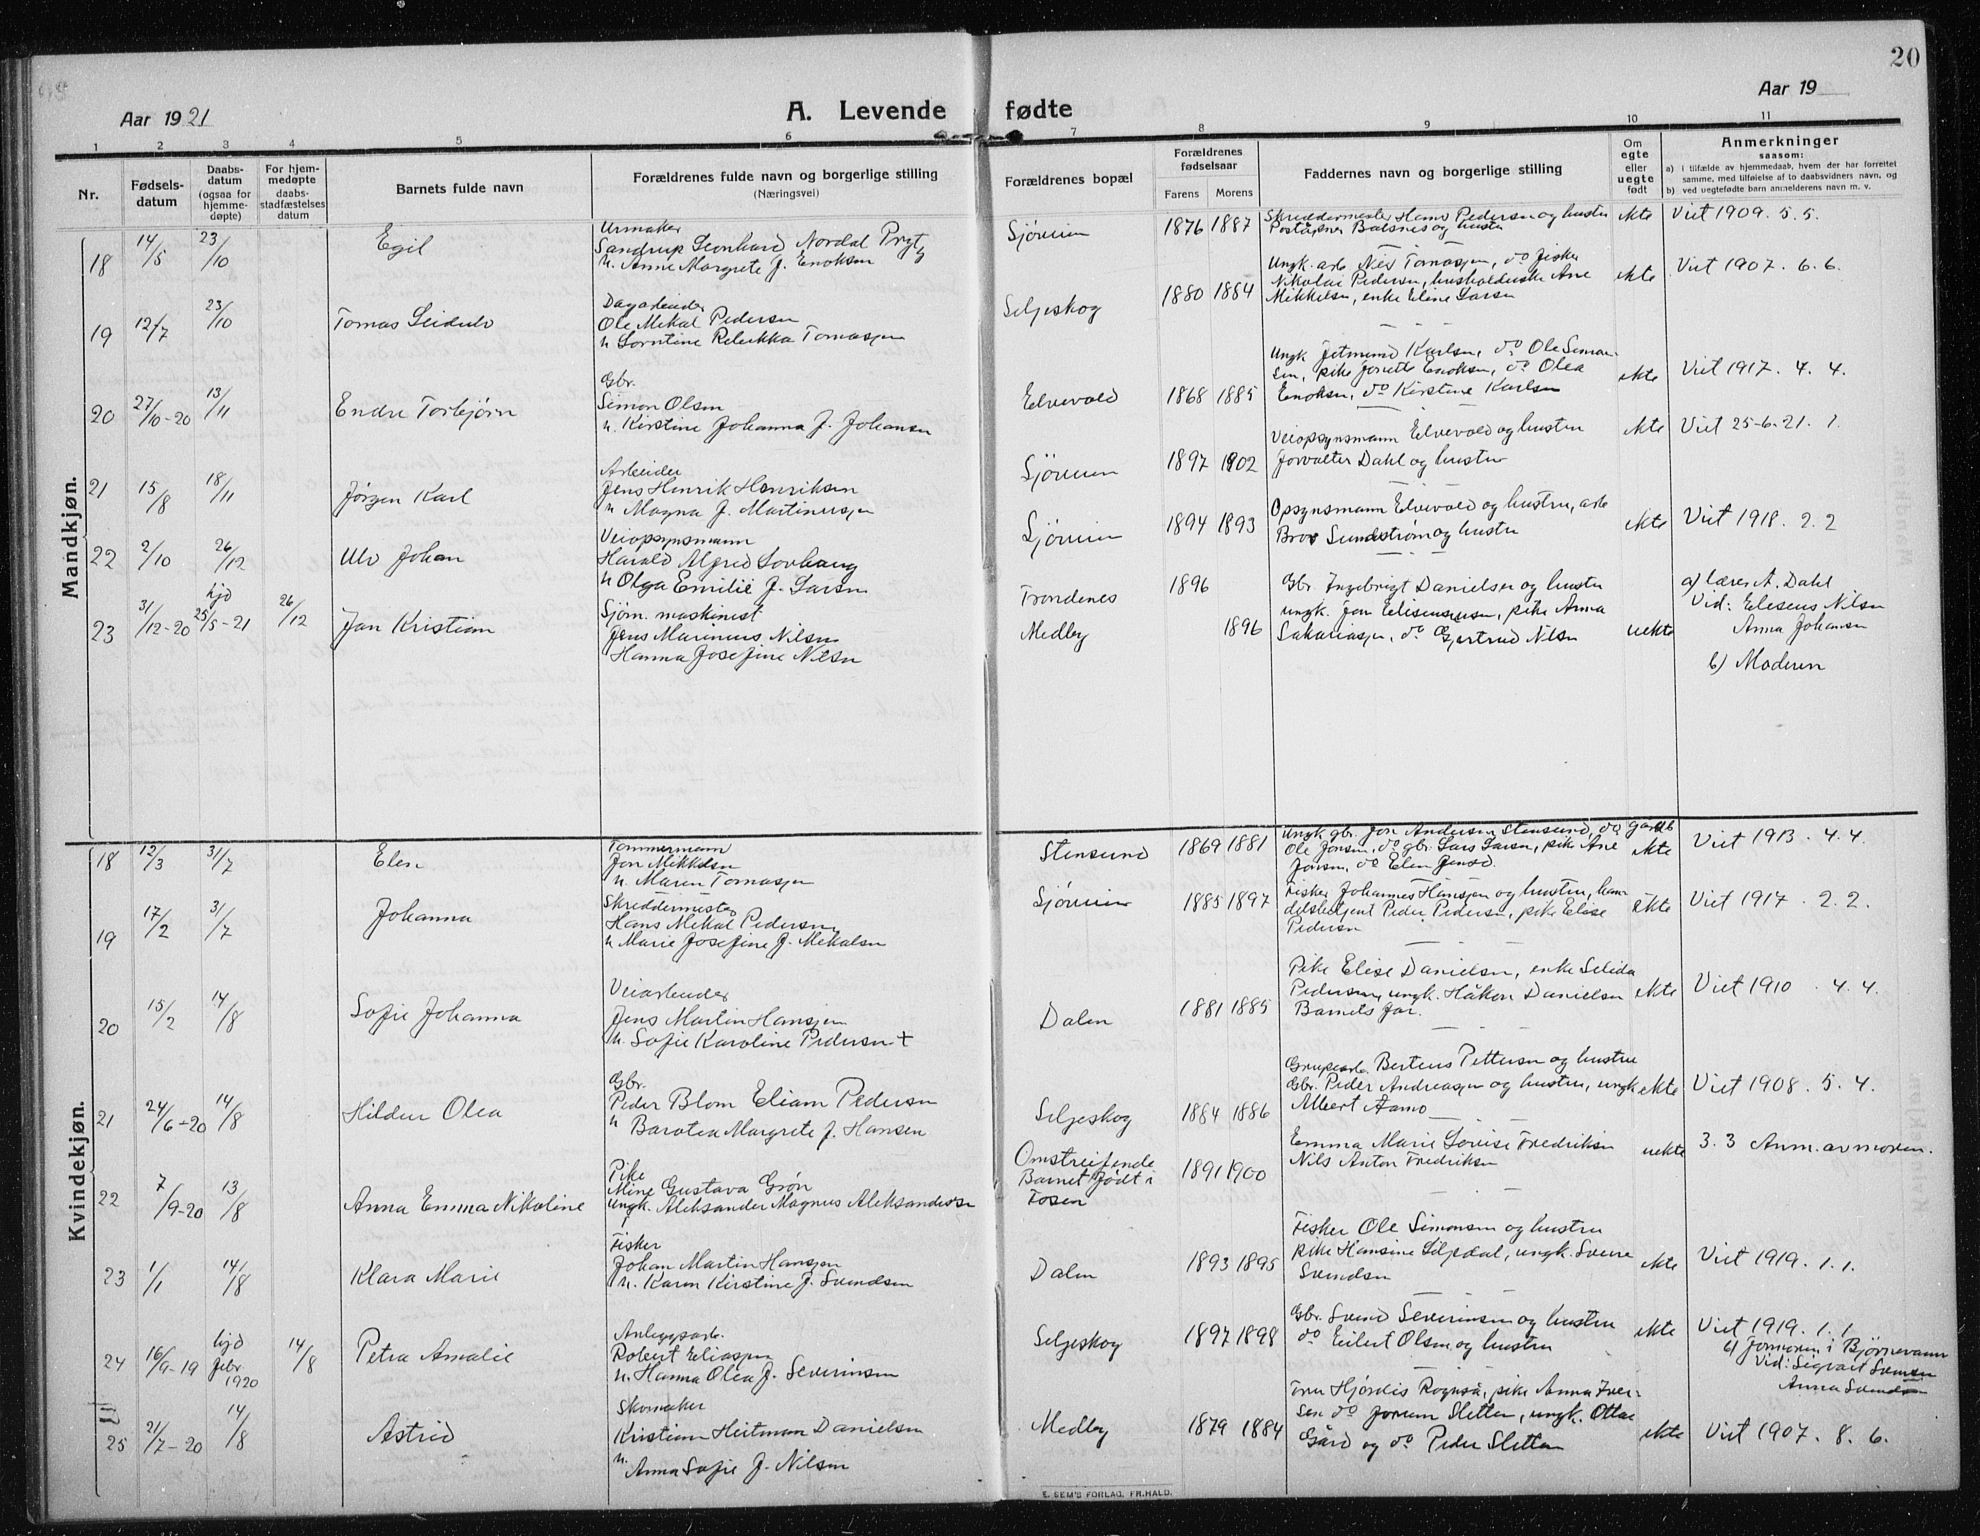 20
Aar 1921
A. Levende fødte
Aar 19
1 2 3 4 5 6 7 8 9 10 11
Nr.
Fødsels-
datum
Daabs-
datum
(ogsaa for
hjemme-
døpte)
For hjem-
medøpte
daabs-
stadfæstelses
datum
Barnets fulde navn
Forældrenes fulde navn og borgerlige stilling
(Næringsvei)
Forældrenes bopæl
Forældrenes
fødselsaar
Farens Morens
Faddernes navn og borgerlige stilling
Om
egte
eller
uegte
født
Anmerkninger
saasom:
a) i tilfælde av hjemmedaab, hvem der har forrettet
samme, med tilføielse af to daabsvidners navn, og
b) ved uegtefødte barn anmelderens navn m. v.
Mandkjøn.
18 14/5 23/10 Egil
Urmaker
Sandrup Leonhard Nordal Prytz
h. Anne Margrete J. Enoksen
Sjøveien 1876 1887
Skreddermester Hans Pedersen og hustru
Postaapner Balsnes og hustru
ekte Viet 1909. 5. 5.
19 12/7 23/10 Tomas Leidulv
Dagarbeider
Ole Mekal Pedersen
h Lorntine Rebekka Tomassen
Seljeskog 1880 1884
Ungk. arb. Nils Tomassen, do fisker
Nikolai Pedersen, husholderske Ane
Mikkelsen, enke Elene Larsen
ekte Viet 1907. 6. 6.
20 27/10-20 13/11 Endre Torbjørn
Gbr.
Simon Olsen
h. Kirstine Johanna J. Johansen
Elvevold 1868 1885
Ungk Jetmund Karlsen, do Ole Simon-
sen, pike Jonette Enoksen, do Olea
Enoksen, do Kirstine Karlsen
ekte Viet 1917. 4. 4.
21 15/8 18/11 Jørgen Karl
Arbeider
Jens Henrik Henriksen
h Magna J. Martinussen
Sjøveien 1897 1902
Veiopsynsmann Elvevold og hustru
Forvalter Dahl og hustru
ekte Viet 25-6-21. 1.
22 2/10 26/12 Ulv Johan
Veiopsynsmann
Harald Alfred Lovhaug
h Olga Emilie J. Larsen
Sjøveien 1894 1893
Opsynsmann Elvevold og hustru, arb
Bror Sundstrøm og hustru
ekte Viet 1918. 2. 2
23 31/12-20 hjd 25/5-21 26/12 Jan Kristian
Sjøm. maskinist
Jens Marenius Nilsen
Hanna Josefine Nilsen
Trondenes 1896
Medby 1896
Gbr. Ingebrigt Danielsen og hustru
ungk. Jon Elisenssen, pike Anna
Sakariassen, do Gjertrud Nilsen
uekte
a) lærer A. Dahl
Vid: Eliseus Nilsen
Anna Johansen
b) Moderen
Kvindekjøn.
18 12/3 31/7 Elen
Tømmermann
Jon Mikkelsen
h. Maren Tomassen
Stensund 1869 1881
Ungk. gbr. Jon Andersen Stensund, do gaardb
Ole Jonsen, do gbr. Lars Larsen, pike Ane
Jonsen, do Elen Jensd.
ekte Viet 1913. 4. 4.
19 17/2 31/7 Johanna
Skreddermester
Hans Mekal Pedersen
h Marie Josefine J. Mekalsen
Sjøveien 1885 1897
Fisker Johannes Hanssen og hustru, han-
delsbetjent Peder Pedersen, pike Elise
Pedersen
ekte Viet 1917. 2. 2.
20 15/2 14/8 Sofie Johanna
Veiarbeider
Jens Martin Hanssen
h. Sofie Karoline Pedersen +
Dalen 1881 1885
Pike Elise Danielsen, enke Selida
Pedersen, ungk. Håkon Danielsen
Barnets far.
ekte Viet 1910. 4. 4.
21 24/6-20 14/8 Hildur Olea
Gbr.
Peder Blom Eliam Pedersen
h Barotea Margrete J. Hansen
Seljeskog 1884 1886
Grubearb. Berteus Pettersen og hustru
Gbr. Peder Andreassen og hustru, ungk
Albert Aamo
ekte Viet 1908. 5. 4.
22 7/9-20 13/8 Anna Emma Nikoline
Pike
Mine Gustava Grøn
ungk. Aleksander Magnus Aleksandersen
Omstreifende
Barnet født i
Fosen
1891 1900
Emma Marie Lovise Fredriksen
Nils Anton Fredriksen
uekte 3. 3 Anm. av moren.
23 1/1 14/8 Klara Marie
Fisker
Johan Martin Hanssen
h. Karen Kirstine J. Svendsen
Dalen 1893 1895
Fisker Ole Simonsen og hustru
pike Hansine Liljedal, ungk. Sverre
Svendsen
ekte Viet 1919. 1. 1.
24 16/9-19 hjd febr 1920 14/8 Petra Amalie
Anleggsarb.
Robert Eliassen
h. Hanna Olea J. Severinsen
Seljeskog 1897 1898
Gbr. Svend Severinsen og hustru
do Eilert Olsen og hustru
ekte Viet 1919. 1. 1.
Formoren i Bjørnevann
Vid: Sigvart Svensen
Anna Svendsen
25 21/7-20 14/8 Astrid
Skomaker
Kristian Heitman Danielsen
h.
Anna Sofie J. Nilsen
Medby 1879 1884
Fru Hjørdis Rognså, pike Anna Iver-
sen do Jorunn Sletten, ungk. Ottar
Gård og do Peder Sletten
ekte Viet 1907. 8. 6.
E. SEM'S FORLAG, FR.HALD.